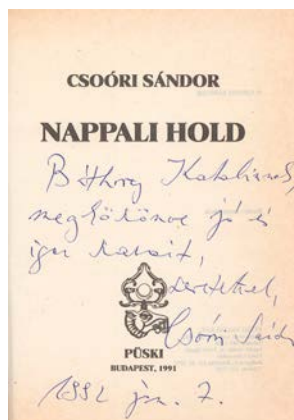 CSOÓRI SÁNDOR
NAPPALI HOLD
Báthory Katalinnak,
megköszönve jó és
igaz szavait,
szeretettel,
Csoóri Sándor
PÜSKI
BUDAPEST, 1991
1992 jan. 7.